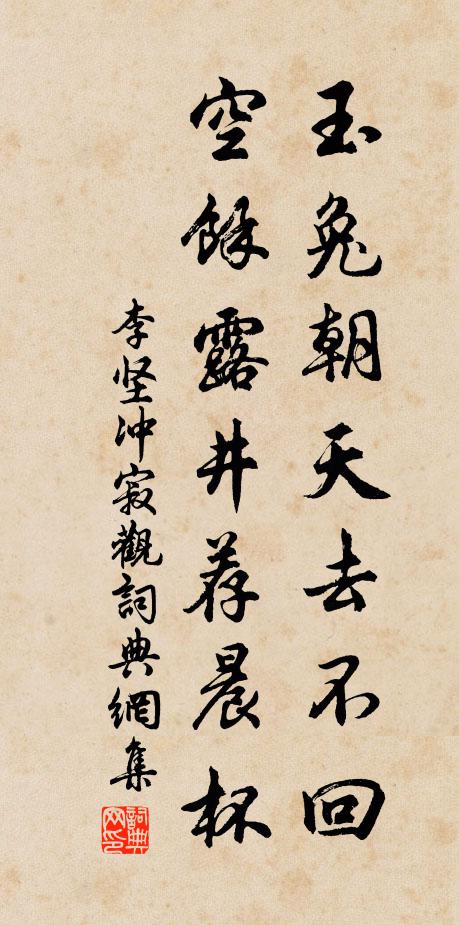 玉兔朝天去不回
空餘露井荐晨杯
李坚冲寂觀詞典網集
詞典网印